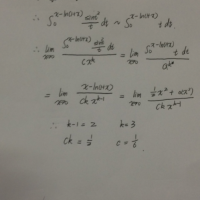 ∴ ∫₀^{x-ln(1+x)} sin t²/t dt ~ ∫₀^{x-ln(1+x)} t dt
∴ lim_{x→0} ∫₀^{x-ln(1+x)} sin t²/t dt / cx^k = lim_{x→0} ∫₀^{x-ln(1+x)} t dt / cx^k
= lim_{x→0} x-ln(1+x) / ck x^{k-1} = lim_{x→0} ½x²+o(x²) / ck x^{k-1}
∴ k-1=2 k=3
ck=½ c=1/6